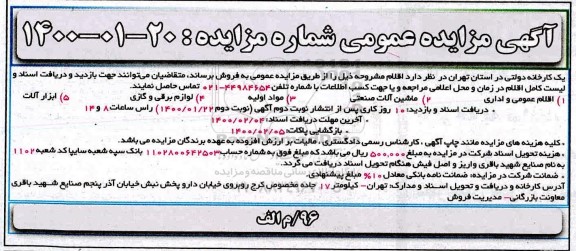 آگهی مزایده عمومی شماره مزایده : ۲۰-۰۱-۱۴۰۰
یک کارخانه دولتی در استان تهران در نظر دارد اقلام مشروحه ذیل را از طریق مزایده عمومی به فروش برساند، متقاضیان می‌توانند جهت بازدید و دریافت اسناد و
لیست کامل اقلام در زمان و محل اعلامی مراجعه و یا جهت کسب اطلاعات با شماره تلفن ۴۴۹۸۴۶۵۴-۰۲۱ تماس حاصل نمایند.
۱) اقلام عمومی و اداری ۲) ماشین آلات صنعتی ۳) مواد اولیه ۴) لوازم برقی و گازی ۵) ابزار آلات
• دریافت اسناد و بازدید: ۱۰ روز کاری پس از انتشار نوبت دوم آگهی (نوبت دوم ۱۴۰۰/۰۱/۲۲) راس ساعات ۸ و ۱۴
• آخرین مهلت دریافت اسناد: ۱۴۰۰/۰۲/۰۴
• بازگشایی پاکات: ۱۴۰۰/۰۲/۰۵
• کلیه هزینه های مزایده مانند چاپ آگهی ، کارشناس رسمی دادگستری ، مالیات بر ارزش افزوده به عهده برندگان مزایده می باشد.
• هزینه تحویل اسناد شرکت در مزایده به مبلغ ۵۰۰,۰۰۰ ریال می باشد که مبلغ فوق به شماره حساب ۱۱۰۲۸۰۰۶۴۲۵۰۳ بانک سپه شعبه سایپا کد شعبه ۱۱۰۲
به نام صنایع شهید باقری واریز و اصل فیش هنگام تحویل اسناد دریافت می گردد.
• ضمانت شرکت در مزایده: ضمانت نامه بانکی معادل ۱۰% مبلغ پیشنهادی.
آدرس کارخانه و دریافت و تحویل اسناد و مدارک: تهران- کیلومتر ۱۷ جاده مخصوص کرج روبروی خیابان دارو پخش نبش خیابان آذر پنجم صنایع شهید باقری
معاونت بازرگانی- مدیریت فروش
۹۶/م الف